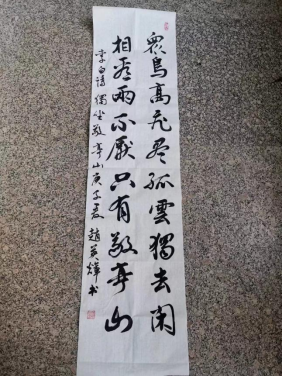 眾鳥高飛盡孤雲獨去閑
相看兩不厭只有敬亭山
李白詩獨坐敬亭山庚子夏趙
書